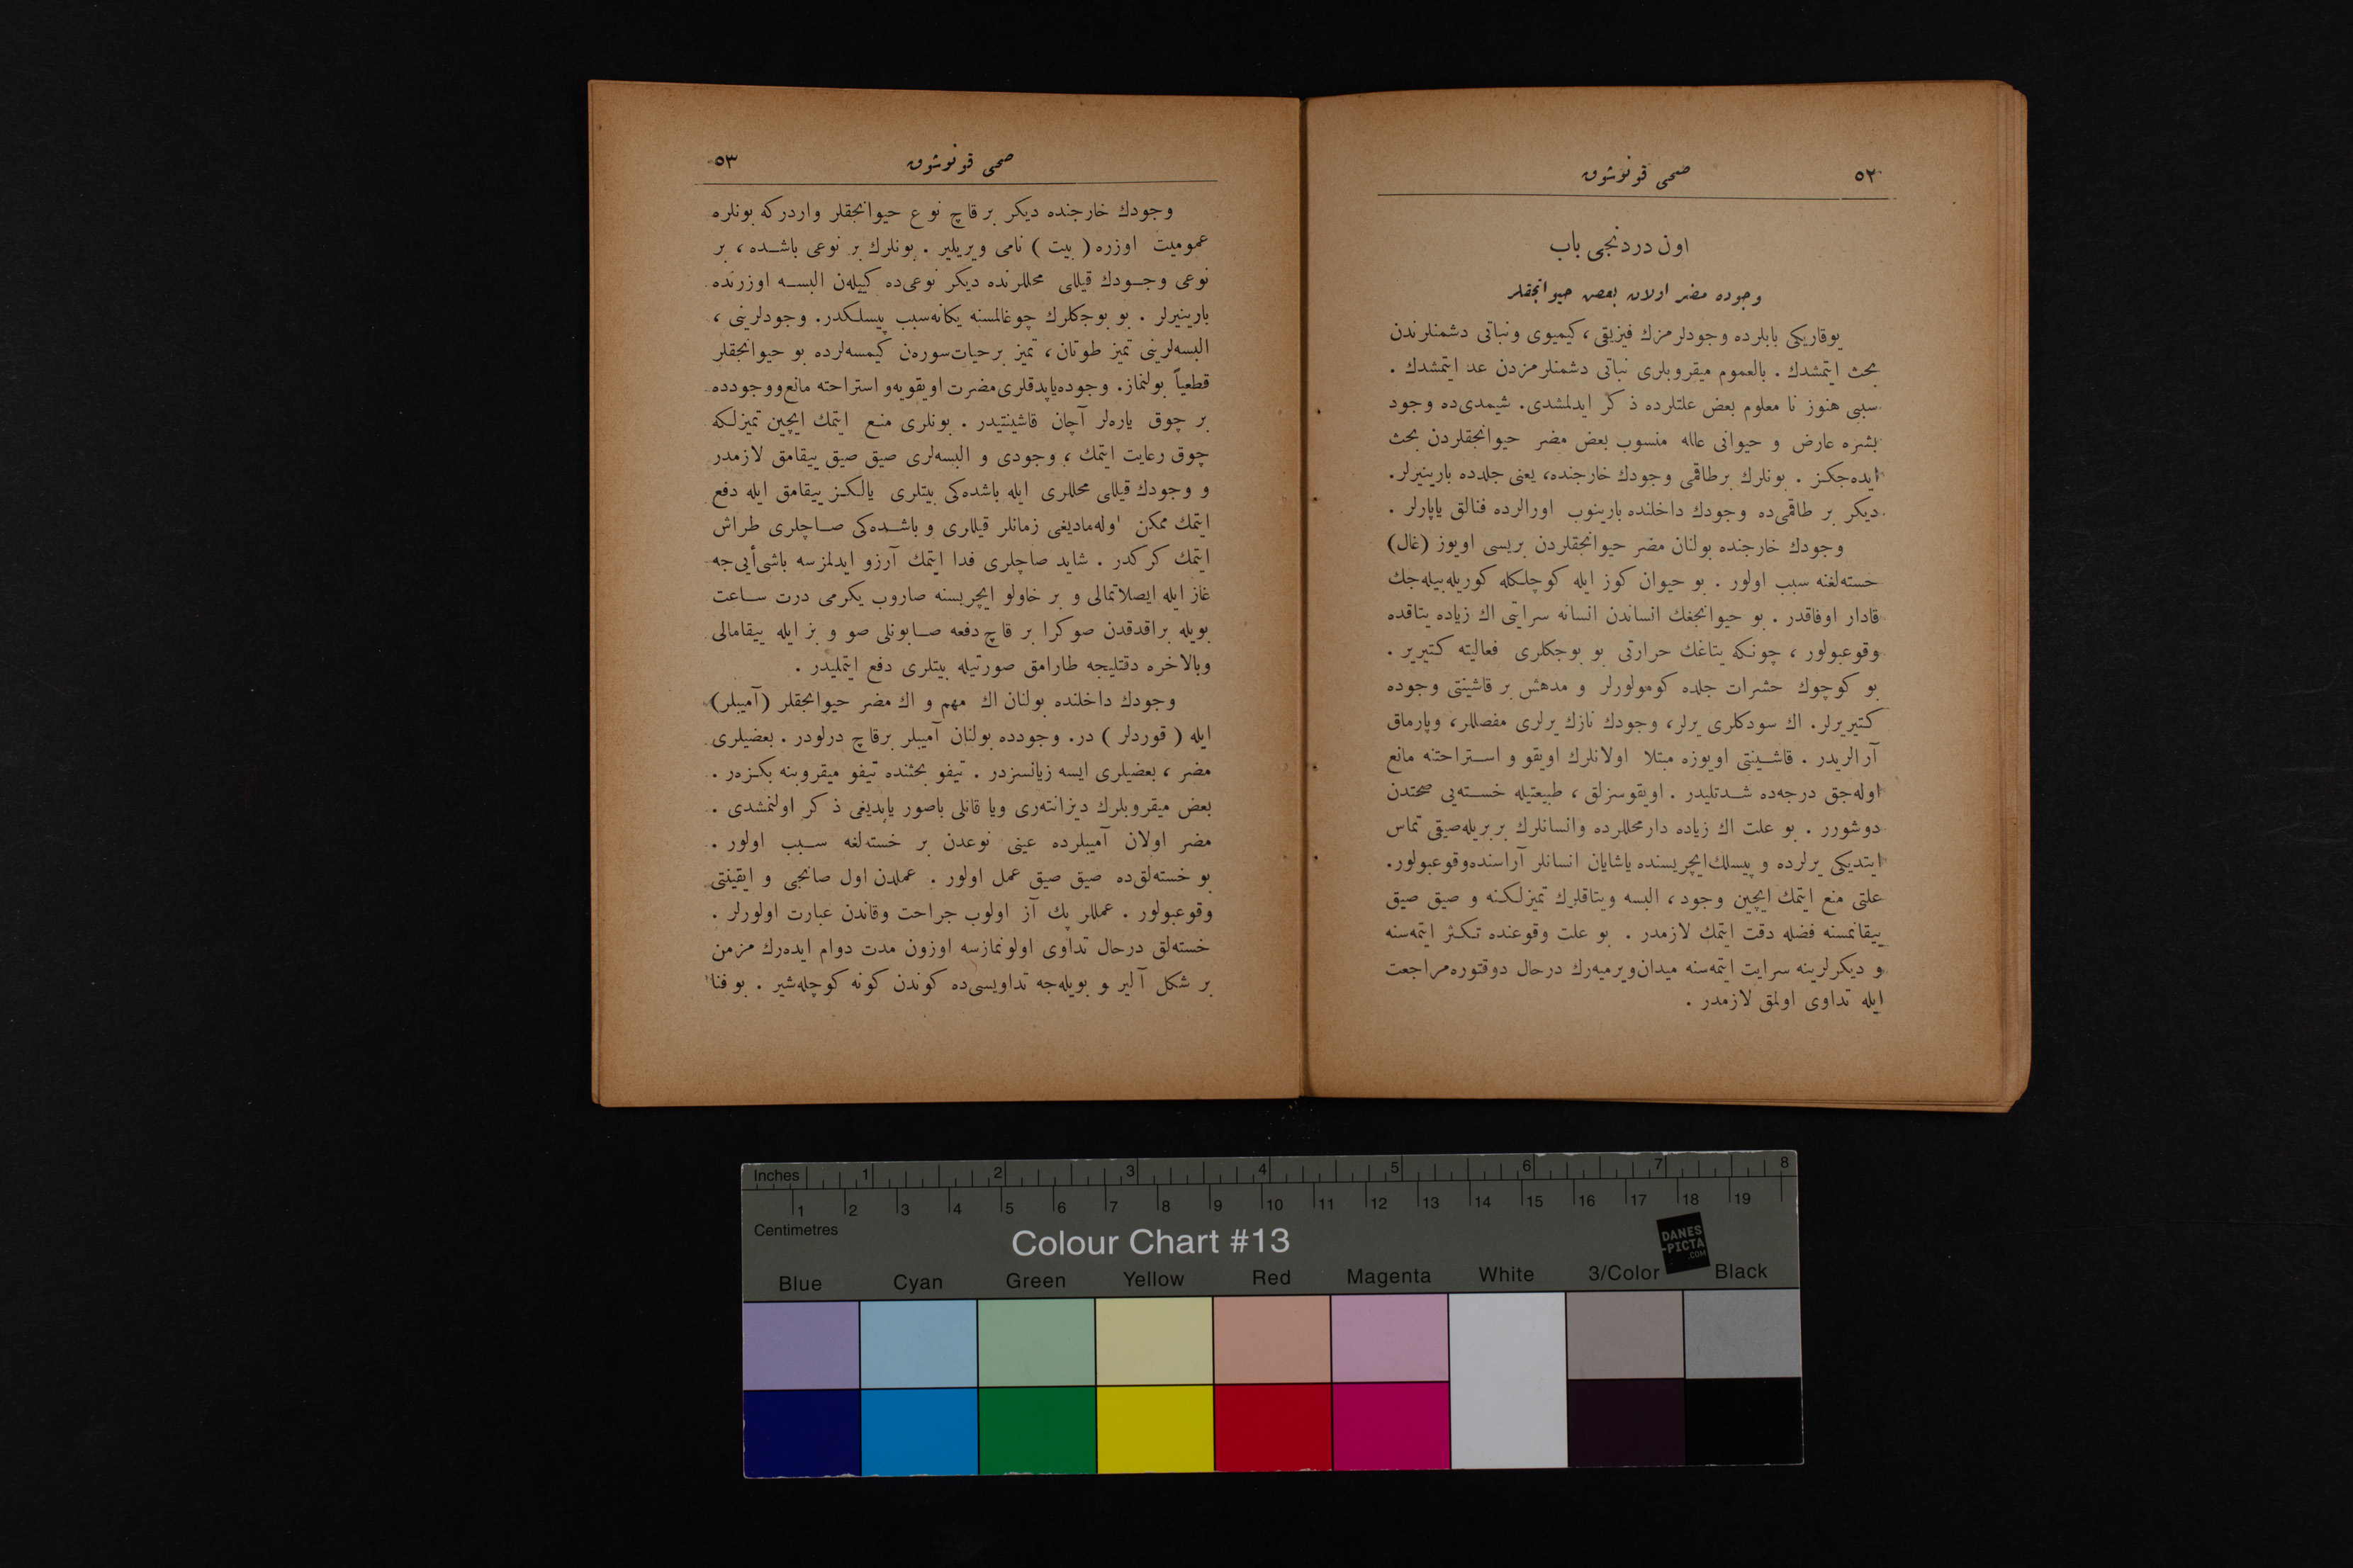 ٥٢ صحى قونوشوق
اون دردنجى باب
وجوده مضر اولان بعض حيوانجقلر
يوقاريكى بابلرده وجودلرمزك فيزيقى ، كيميوى ونباتى دشمنلرندن
بحث ايتمشدك . بالعموم ميقروبلرى نباتى دشمنلرمزدن عد ايتمشدك .
سببى هنوز نا معلوم بعض علتلرده ذكر ايدلمشدى . شيمدى‌ده وجود
بشره عارض و حيوانى عالمه منسوب بعض مضر حيوانجقلردن بحث
ايده‌جكز . بونلرك برطاقمى وجودك خارجنده، يعنى جلدده بارينيرلر .
ديكر بر طاقمى‌ده وجودك داخلنده بارينوب اورالرده فنالق ياپارلر .
وجودك خارجنده بولنان مضر حيوانجقلردن بريسى اويوز (غال)
خسته‌لغنه سبب اولور . بو حيوان كوز ايله كوچلكله كوريله‌بيله‌جك
قادار اوفاقدر . بو حيوانجغك انساندن انسانه سرايتى اك زياده يتاقده
وقوعبولور ، چونكه يتاغك حرارتى بو بوجكلرى فعاليته كتيرير .
بو كوچوك حشرات جلده كومولورلر و مدهش بر قاشينتى وجوده
كتيريرلر. اك سودكلرى يرلر، وجودك نازك يرلرى مفصللر، وپارماق
آرالريدر . قاشينتى اويوزه مبتلا اولانلرك اويقو و استراحتنه مانع
اوله‌جق درجه‌ده شدتليدر . اويقوسزلق ، طبيعتيله خسته‌يى صحتدن
دوشورر . بو علت اك زياده دارمحللرده وانسانلرك بربريله‌صيقى تماس
ايتديكى يرلرده و پيسلك‌ايچريسنده ياشايان انسانلر آراسنده‌وقوعبولور .
علتى منع ايتمك ايچين وجود ، البسه ويتاقلرك تميزلكنه و صيق صيق
ييقانمسنه فضله دقت ايتمك لازمدر . بو علت وقوعنده تكثر ايتمه‌سنه
و ديكرلرينه سرايت ايتمه‌سنه ميدان‌ويرميه‌رك درحال دوقتوره‌مراجعت
ايله تداوى اولمق لازمدر .
صحى قونوشوق ٥٣
وجودك خارجنده ديكر بر قاچ نوع حيوانجقلر واردركه بونلره
عموميت اوزره ( بيت ) نامى ويريلير . بونلرك بر نوعى باشده ، بر
نوعى وجودك قيللى محللرنده ديكر نوعى‌ده كييلەن البسه اوزرنده
بارينيرلر . بو بوجكلرك چوغالمسنه يكانه‌سبب پيسلكدر. وجودلرينى ،
البسه‌لرينى تميز طوتان ، تميز برحيات‌سوره‌ن كيمسه‌لرده بو حيوانجقلر
قطعياً بولنماز. وجوده‌ياپدقلرى‌مضرت اويقويه‌و استراحته مانع‌ووجودده
بر چوق ياره‌لر آچان قاشينتيدر . بونلرى منع ايتمك ايچين تميزلكه
چوق رعايت ايتمك ، وجودى و البسه‌لرى صيق صيق ييقامق لازمدر
و وجودك قيللى محللرى ايله باشده‌كى بيتلرى يالكز ييقامق ايله دفع
ايتمك ممكن اوله‌ماديغى زمانلر قيللرى و باشده‌كى صاچلرى طراش
ايتمك كركدر . شايد صاچلرى فدا ايتمك آرزو ايدلمزسه باشى‌أيى‌جه
غاز ايله ايصلاتمالى و بر خاولو ايچريسنه صاروب يكرمى درت ساعت
بويله براقدقدن صوكرا بر قاچ دفعه صابونلى صو و بز ايله ييقامالى
وبالاخره دقتليجه طارامق صورتيله بيتلرى دفع ايتمليدر .
وجودك داخلنده بولنان اك مهم و اك مضر حيوانجقلر (آميبلر)
ايله ( قوردلر ) در. وجودده بولنان آميبلر برقاچ درلودر . بعضيلرى
مضر ، بعضيلرى ايسه زيانسزدر . تيفو بحثنده تيفو ميقروبنه بكزه‌ر .
بعض ميقروبلرك ديزانته‌رى ويا قانلى باصور ياپديغى ذكر اولنمشدى .
مضر اولان آميبلرده عينى نوعدن بر خسته‌لغه سبب اولور .
بو خسته‌لق‌ده صيق صيق عمل اولور . عملدن اول صانجى و ايقينتى
وقوعبولور . عمللر پك آز اولوب جراحت وقاندن عبارت اولورلر .
خسته‌لق درحال تداوى اولونمازسه اوزون مدت دوام ايده‌رك مزمن
بر شكل آلير و بويله‌جه تداويسى‌ده كوندن كونه كوچله‌شير . بو فنا
Inches 1 2 3 4 5 6 7 8
1 2 3 4 5 6 7 8 9 10 11 12 13 14 15 16 17 18 19
Centimetres
Colour Chart #13
DANES
-PICTA
.COM
Blue Cyan Green Yellow Red Magenta White 3/Color Black